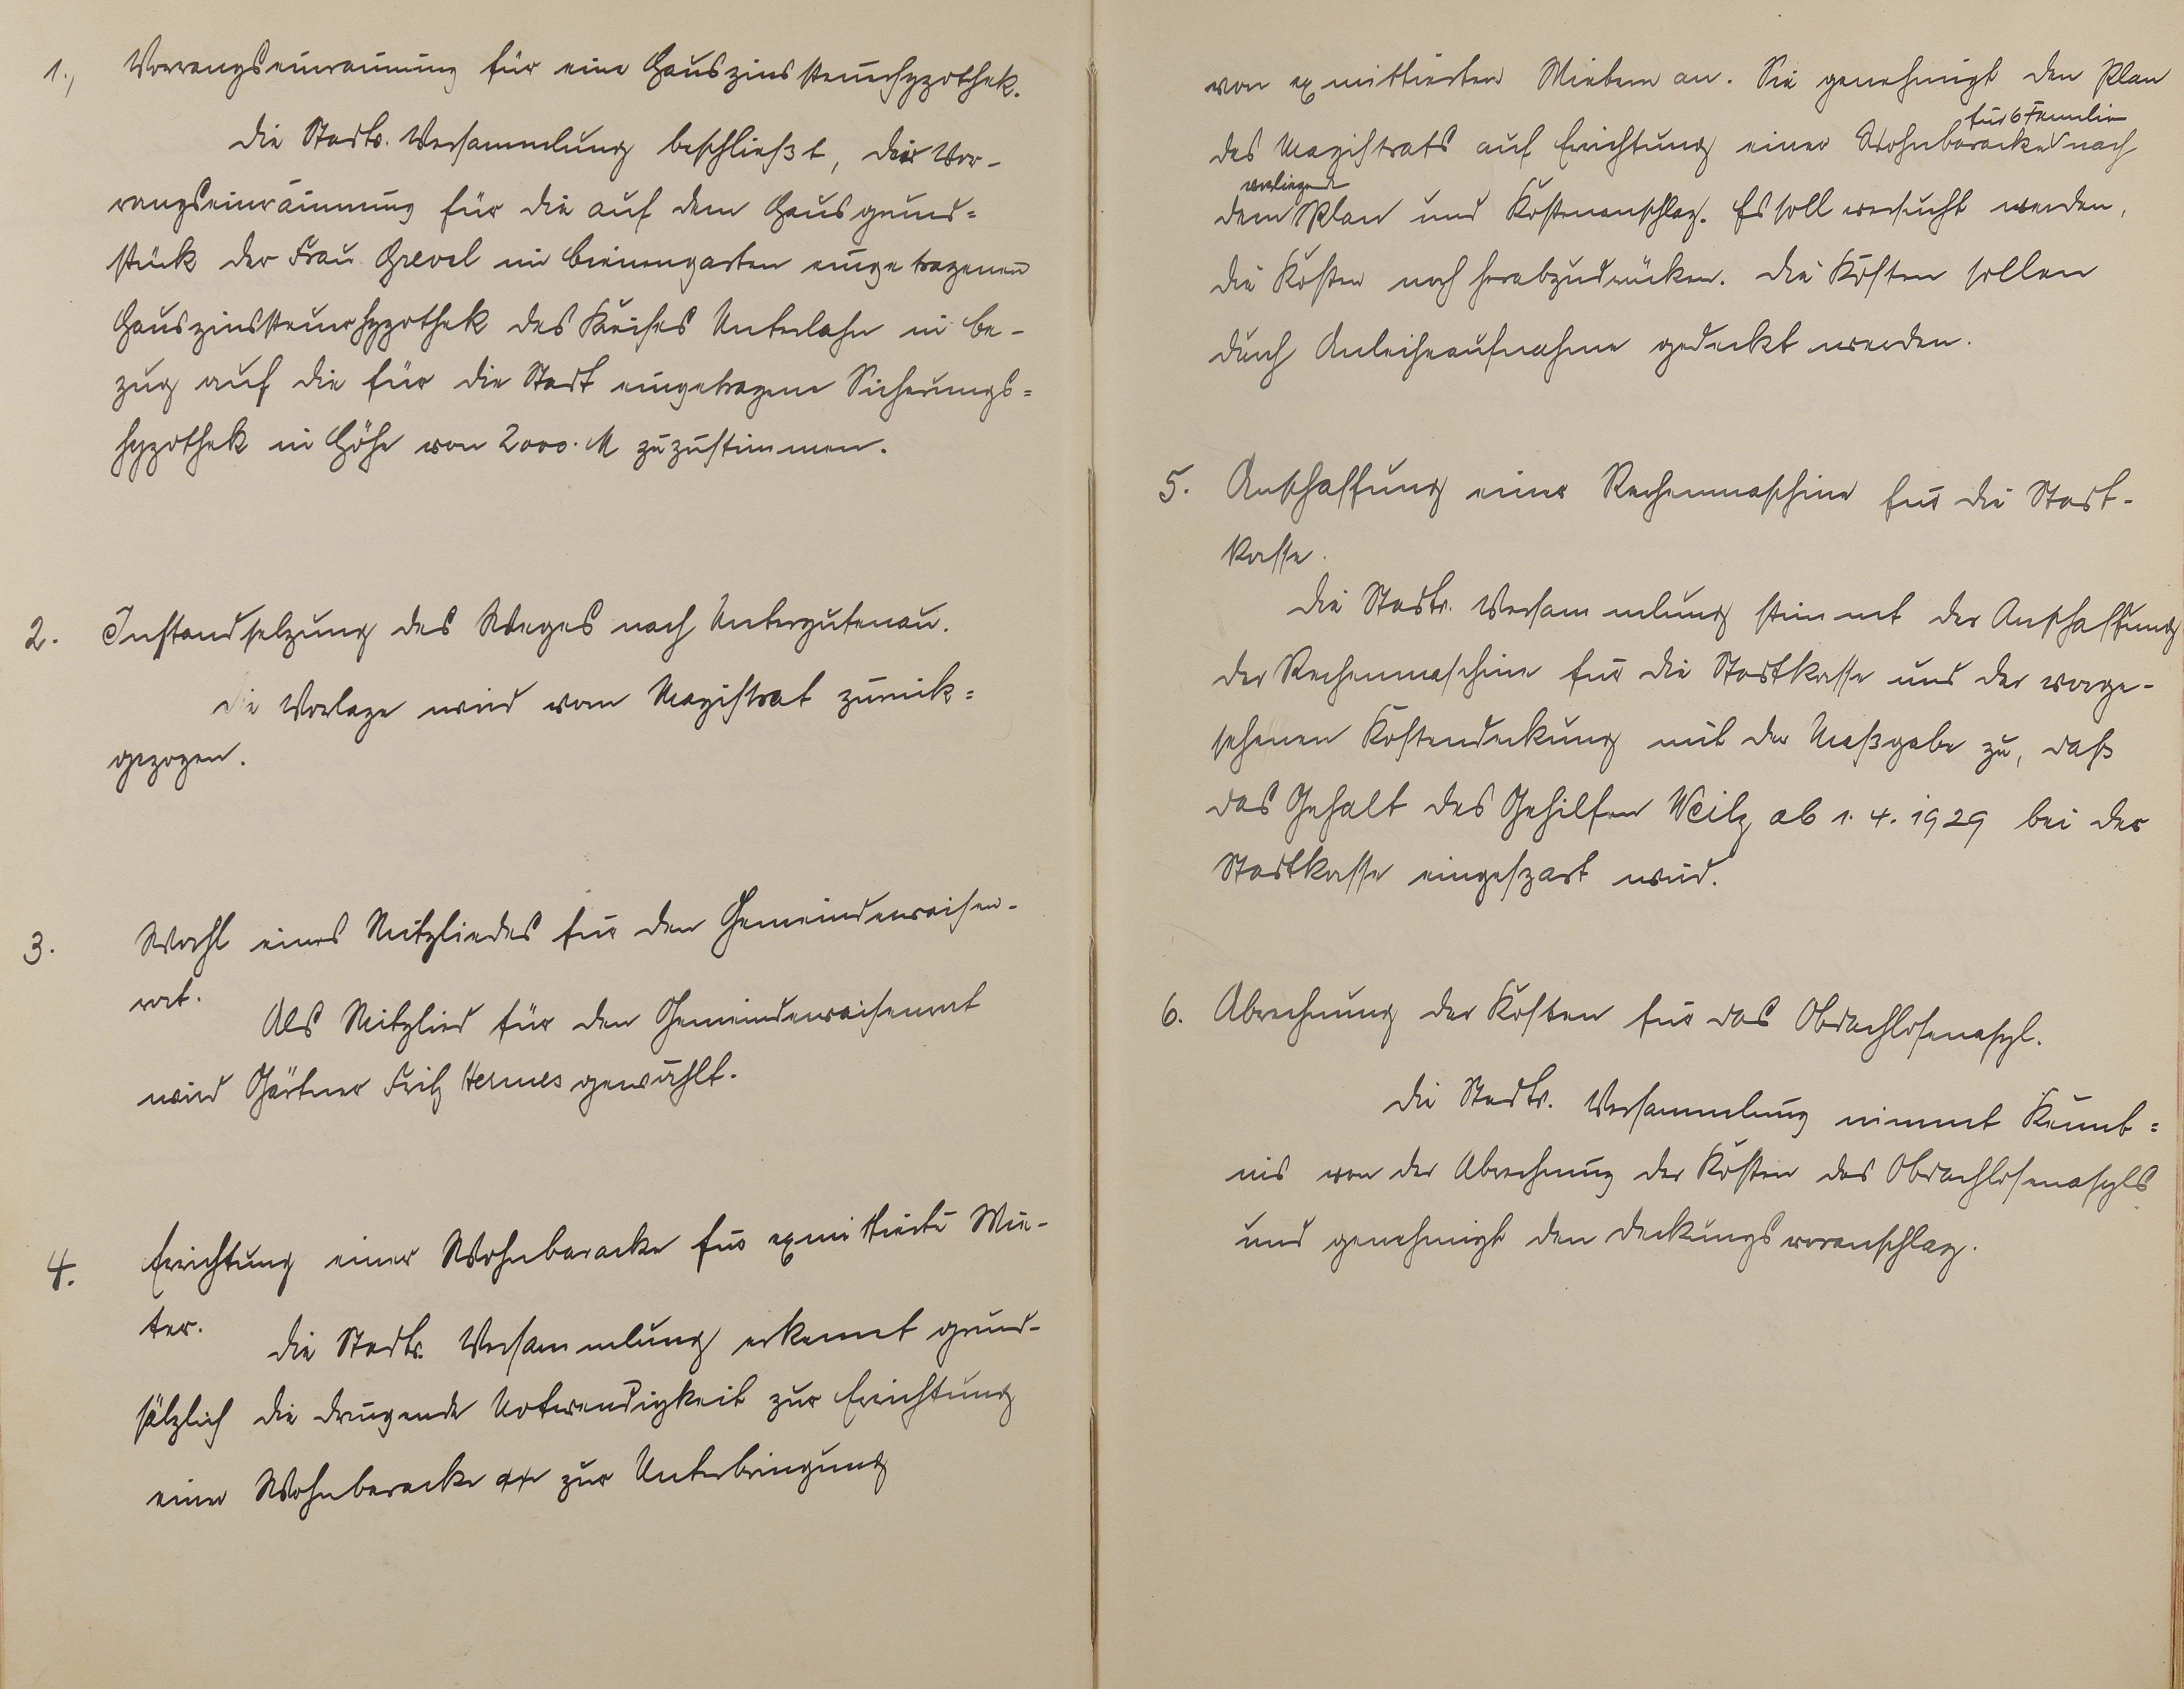 1., Vorrangseinräumung für eine Hauszinssteuerhypothek.
Die Stadtv. Versammlung beschließt, der Vor-
rangseinräumung für die auf dem Hausgrund=
stück der Frau Grevel im Bienengarten eingetragenen
Hauszinssteuerhypothek des Kreises Unterlahn in be-
zug auf die für die Stadt eingetragene Sicherungs=
hypothek in Höhe von 2000. M zuzustimmen.
2. Instandsetzung des Weges nach Untergutenau.
Die Vorlage wird vom Magistrat zurück=
gezogen.
3. Wahl eines Mitgliedes für den Gemeindewaisen-
rat.
Als Mitglied für den Gemeindewaisenrat
wird Gärtner Fritz Hermes gewählt.
4. Errichtung einer Wohnbaracke für exmittierte Mie-
ter.
Die Stadtv. Versammlung erkennt grund-
sätzlich die dringende Notwendigkeit zur Errichtung
einer Wohnbaracke zur Unterbringung
von exmittierten Mietern an. Sie genehmigt den Plan
für 6 Familien
des Magistrats auf Errichtung einer Wohnbaracke nach
vorliegende
dem Plan und Kostenanschlag. Es soll versucht werden,
die Kosten noch herabzudrücken. Die Kosten sollen
durch Anleiheaufnahme gedeckt werden.
5. Anschaffung einer Rechenmaschine für die Stadt-
kasse.
Die Stadtv. Versammlung stimmt der Anschaffung
der Rechenmaschine für die Stadtkasse und der vorge-
sehenen Kostendeckung mit der Maßgabe zu, daß
das Gehalt des Gehilfen Weitz ab 1. 4. 1929 bei der
Stadtkasse eingespart wird.
6. Abrechnung der Kosten für das Obdachlosenasyl.
Die Stadtv. Versammlung nimmt Kennt=
nis von der Abrechnung der Kosten des Obdachlosenasyls
und genehmigt den Deckungsvoranschlag.